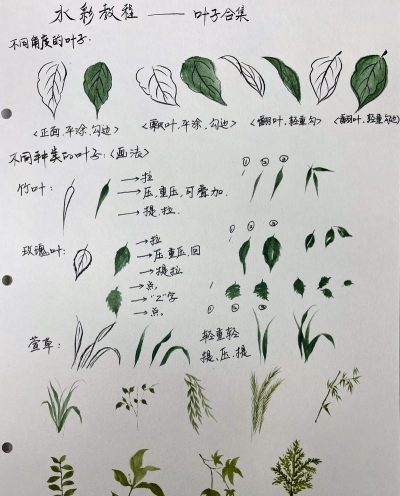 水彩教程 —— 叶子合集
不同角度的叶子:
<正面,平涂,勾边> <飘叶,平涂,勾边> <翻叶,轻重勾> <翻叶,轻重勾边>
不同种类的叶子:<画法>
① ② ③
竹叶: →拉
→压,重压,可叠加.
→提,拉.
① ② ③
玫瑰叶: →拉
→压,重压,回
→提拉
→点,
→"Z"字
→点.
萱草: 轻重轻
提,压,提